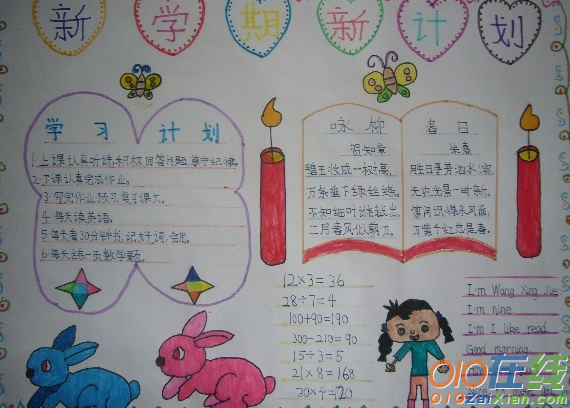 新学期新计划
学习计划
1.上课认真听讲,积极回答问题,遵守纪律。
2.下课认真完成作业。
3.写完作业,预习、复习课文。
4.每天读英语。
5.每天看30分钟书,记好词、好句。
6.每天练一页数学题。
咏柳
贺知章
碧玉妆成一树高,
万条垂下绿丝绦。
不知细叶谁裁出,
二月春风似剪刀。
春日
朱熹
胜日寻芳泗水滨,
无边光景一时新。
等闲识得东风面,
万紫千红总是春。
12×3=36
28÷7=4
100+90=190
300-210=90
15÷3=5
21×8=168
30×4=120
I'm Wang Xing Jie
I'm nine.
I'm I like read.
Good morning.
010在线
010ZaiXian.com